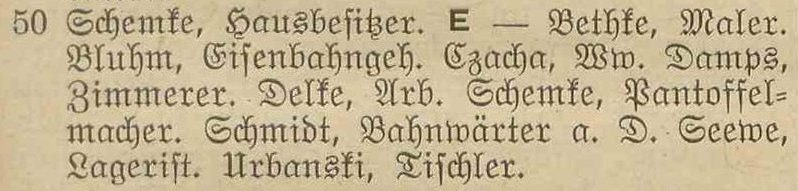 50 Schemke, Hausbesitzer. E — Bethke, Maler.
Bluhm, Eisenbahngeh. Czacha, Ww. Damps,
Zimmerer. Delke, Arb. Schemke, Pantoffel-
macher. Schmidt, Bahnwärter a. D. Seewe,
Lagerist. Urbanski, Tischler.